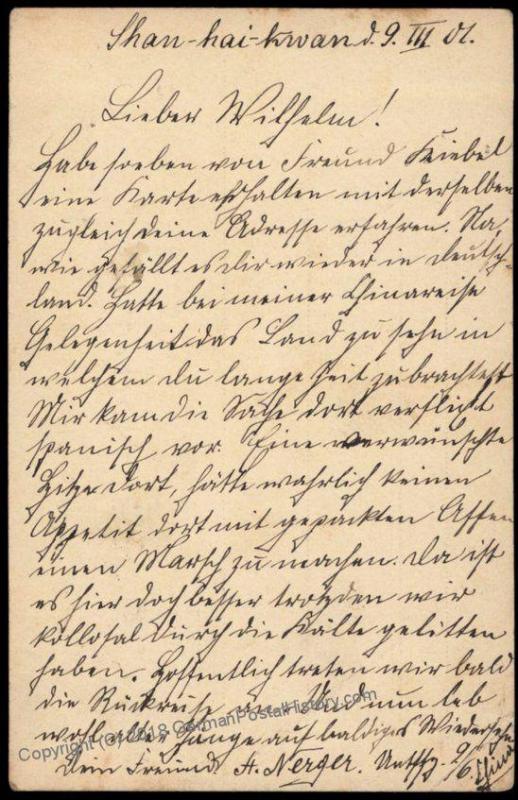 Shan-hai-kwan d. 9. III 01.
Lieber Wilhelm!
Habe soeben von Freund Kiebel
eine Karte erhalten mit derselben
zugleich deine Adresse erfahren. Na,
wie gefällt es dir wieder in Deutsch-
land. Hatte bei meiner Chinareise
Gelegenheit das Land zu sehn in
welchem du lange Zeit zubrachtest
Mir kam die Sache dort verflixt
spanisch vor. Eine verwünschte
Hitze dort, hätte wahrlich keinen
Appetit dort mit gepackten Affen
einen Marsch zu machen. Da ist
es hier doch besser trotzden wir
kollosal durch die Kälte gelitten
haben. Hoffentlich treten wir bald
die Rückreise an. Und nun leb
wohl alter Junge auf baldiges Wiedersehn
Dein Freund A. Nerger. Untffz. 2/6. China
Copyright (C) 2018 GermanPostalHistory.com